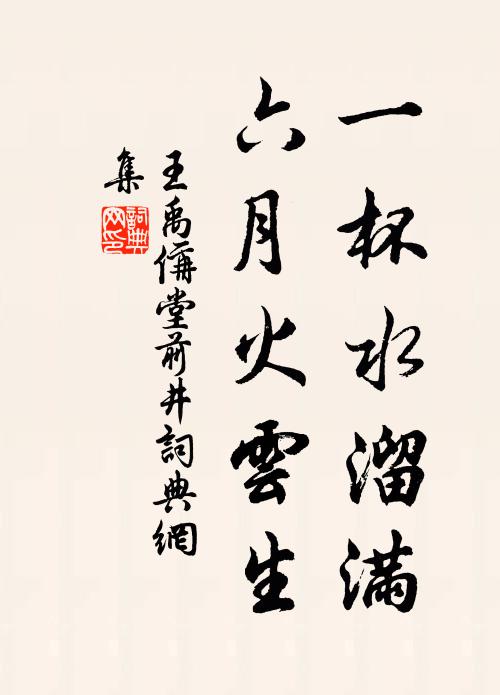 一杯水溜滿
六月火雲生
王禹偁堂前井詞典網
集
詞典
网印